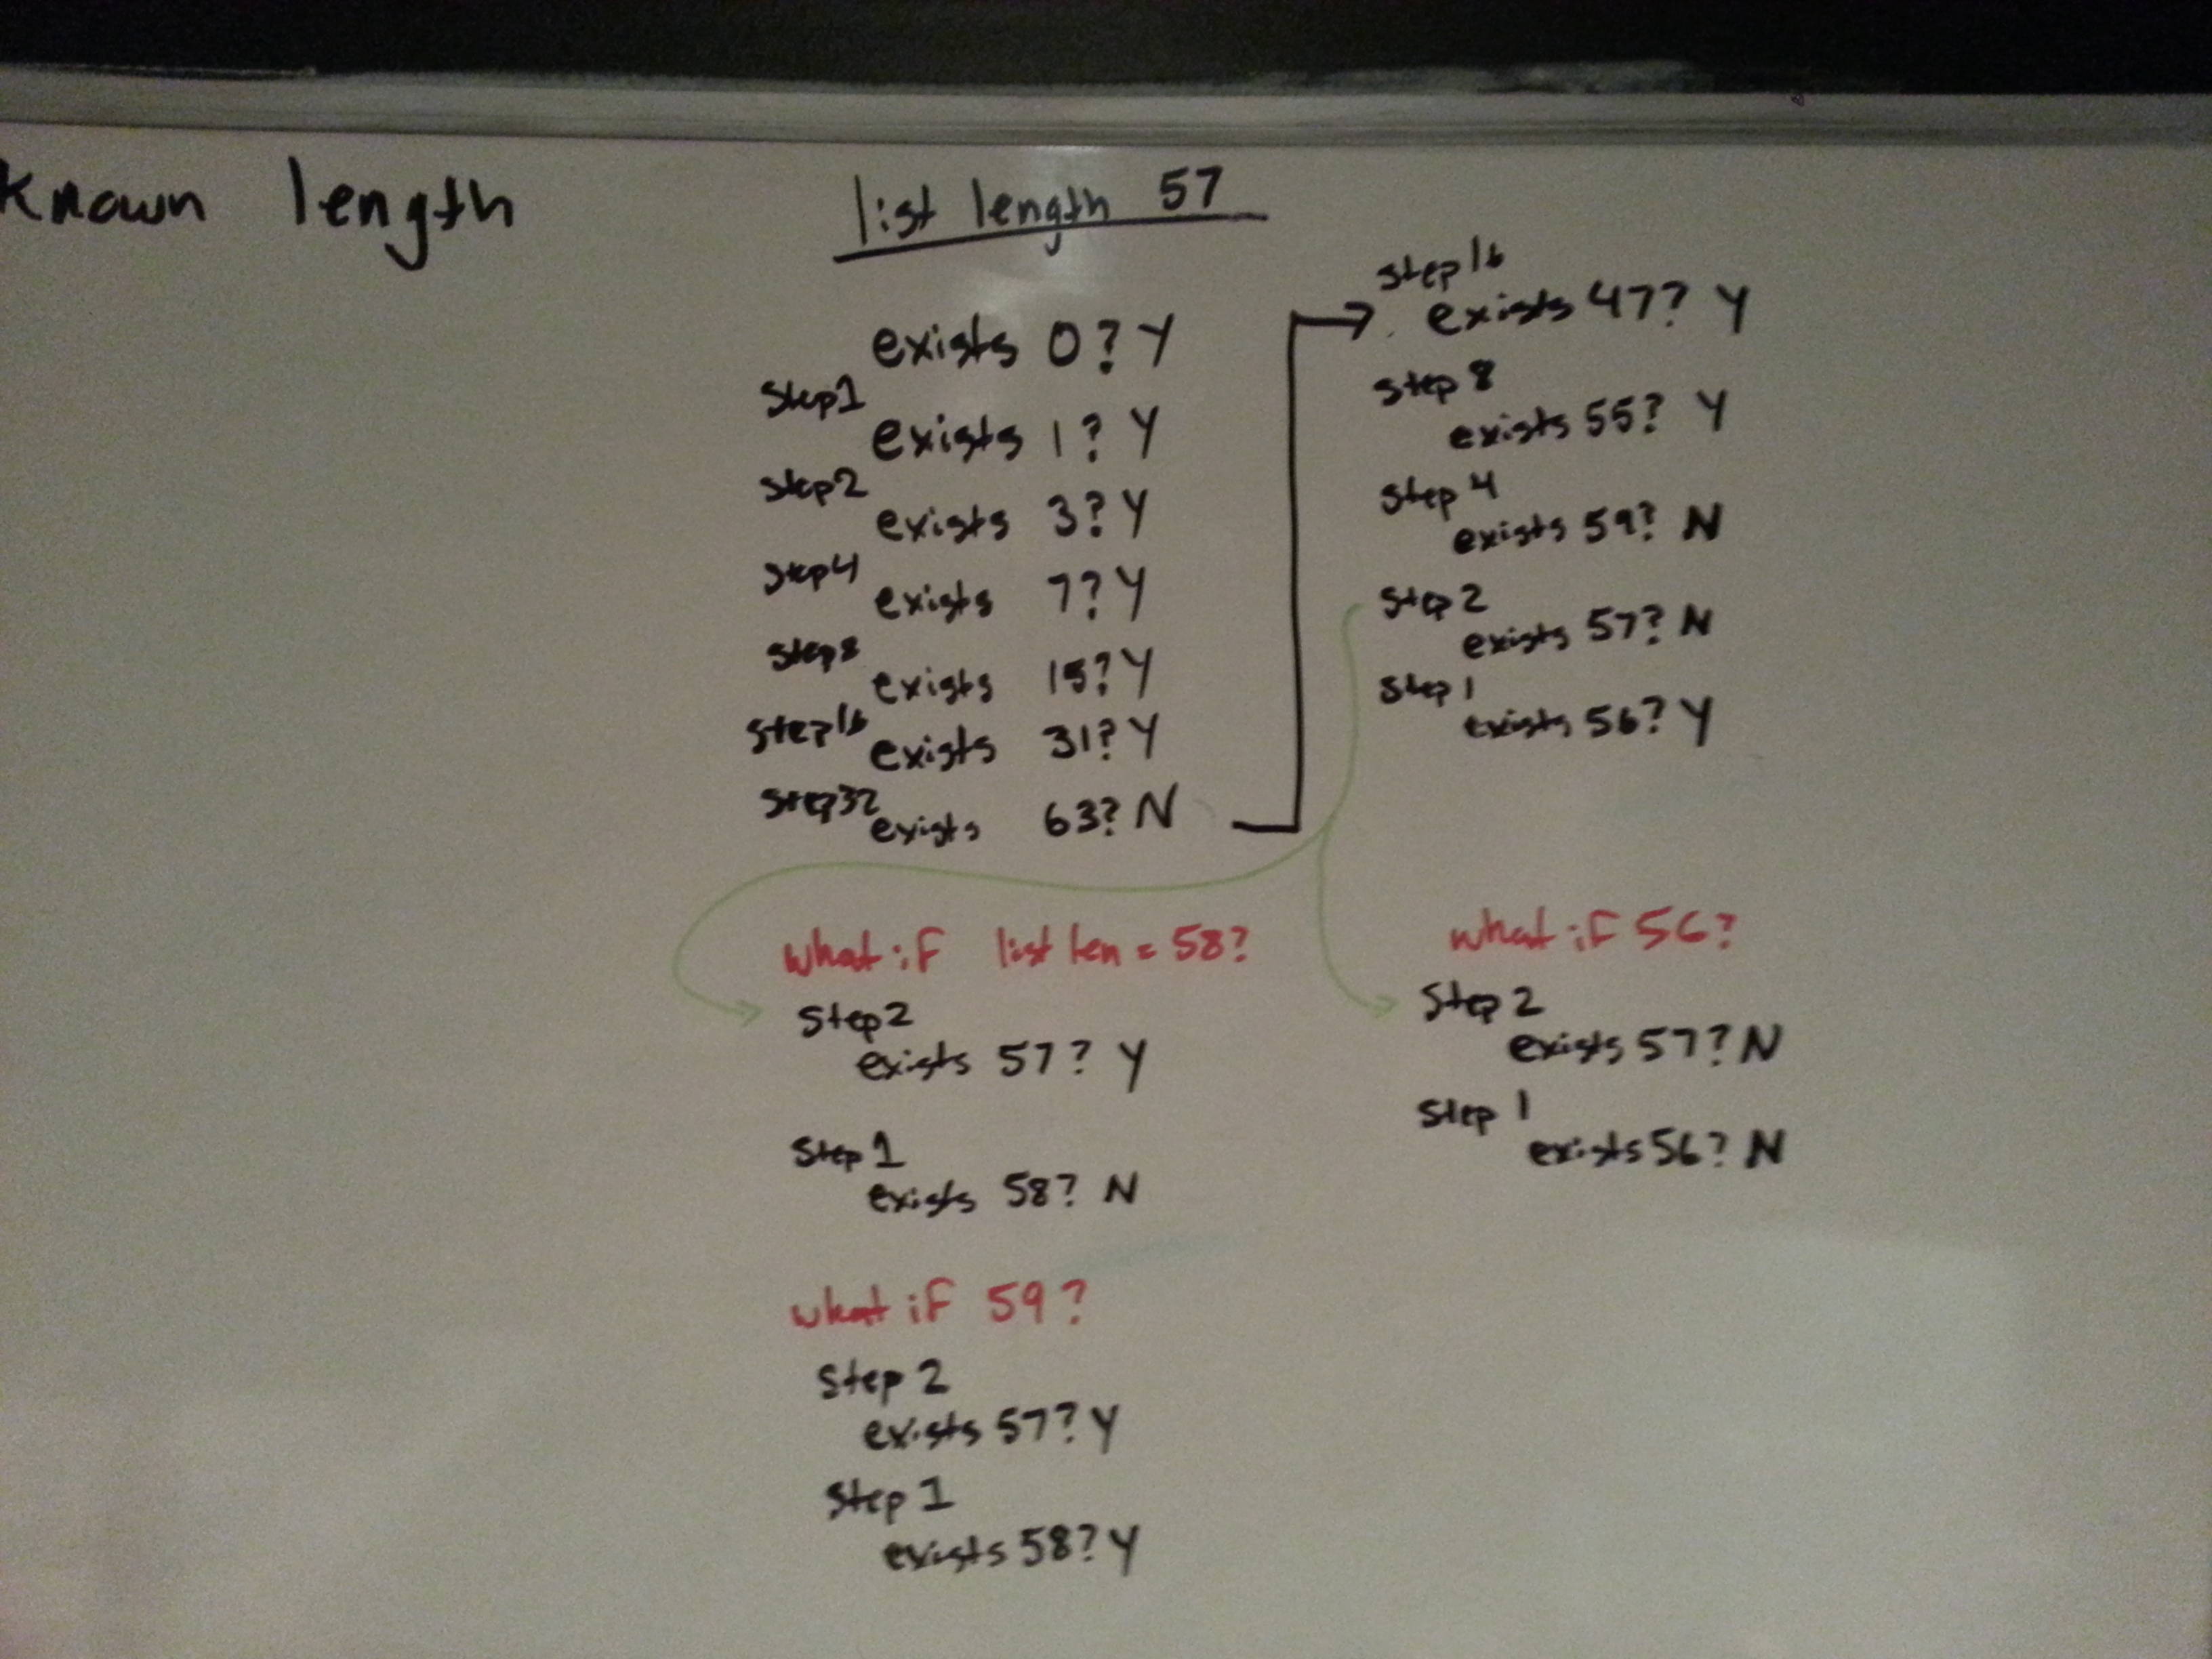 known length
list length 57
exists 0? Y
Step1
exists 1? Y
Step2
exists 3? Y
Step4
exists 7? Y
Step8
exists 15? Y
Step16
exists 31? Y
Step32
exists 63? N
Step16
exists 47? Y
Step 8
exists 55? Y
Step 4
exists 59? N
Step 2
exists 57? N
Step 1
exists 56? Y
what if list len = 58?
Step2
exists 57? Y
Step1
exists 58? N
what if 59?
Step 2
exists 57? Y
Step 1
exists 58? Y
what if 56?
Step 2
exists 57? N
Step 1
exists 56? N